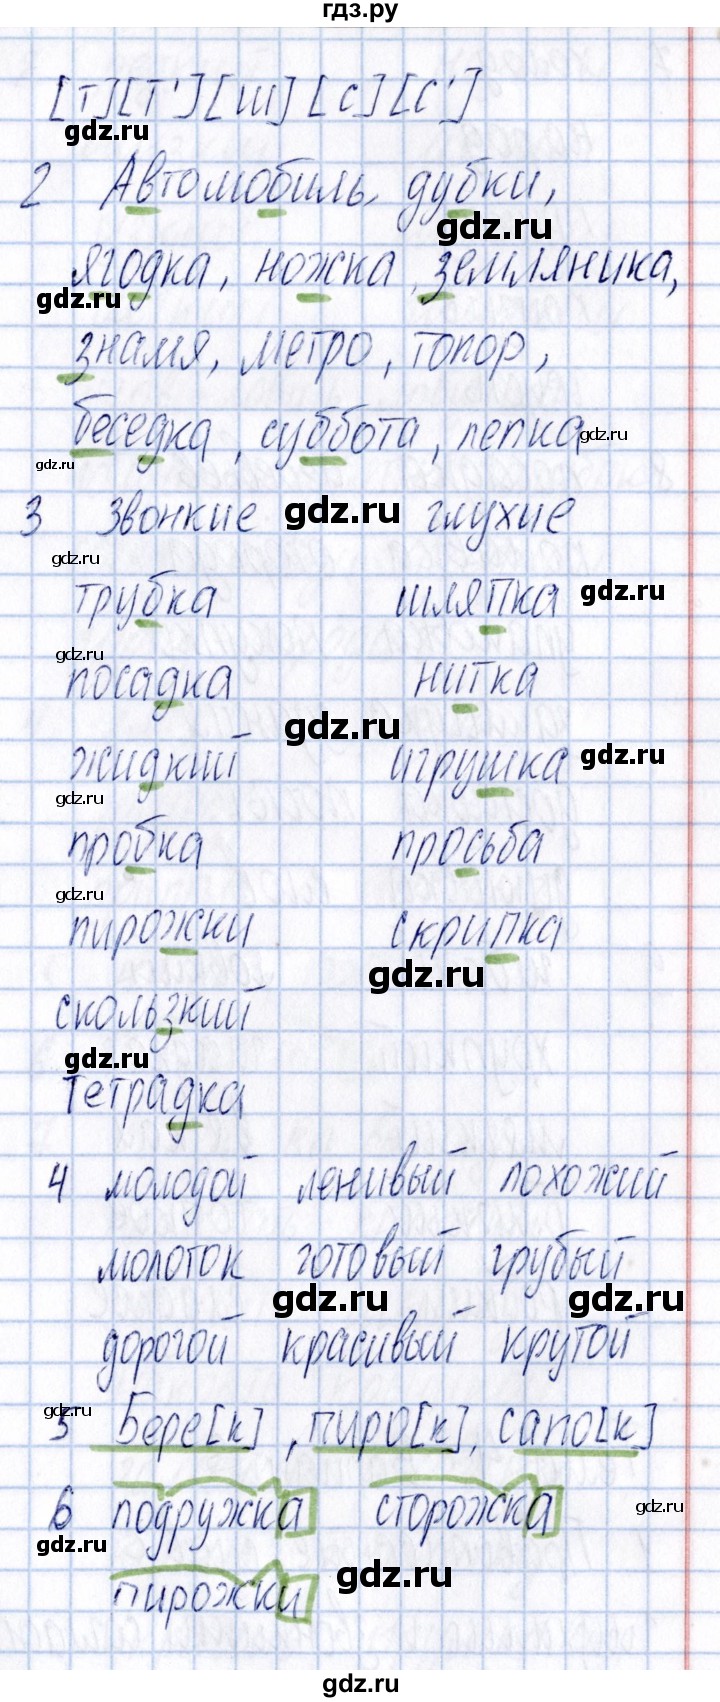 гдз.ру
[т][т'][ш][с][с']
gdz.ru
2 Автомобиль, дубки,
gdz.ru
ягодка, ножка, земляника,
gdz.ru
знамя, метро, топор,
беседка, суббота, лепка
gdz.ru
gdz.ru
3 Звонкие глухие
gdz.ru
gdz.ru
трубка шляпка
gdz.ru
gdz.ru
посадка нитка
gdz.ru
жидкий игрушка
gdz.ru
gdz.ru
пробка просьба
gdz.ru
пирожки скрипка
gdz.ru
скользкий
gdz.ru
Тетрадка
4 молодой ленивый похожий
молоток готовый грубый
gdz.ru gdz.ru
дорогой красивый крутой
gdz.ru
5 Бере[к], пиро[к], сапо[к]
6 подружка сторожка
gdz.ru
gdz.ru
пирожки
gdz.ru
gdz.ru